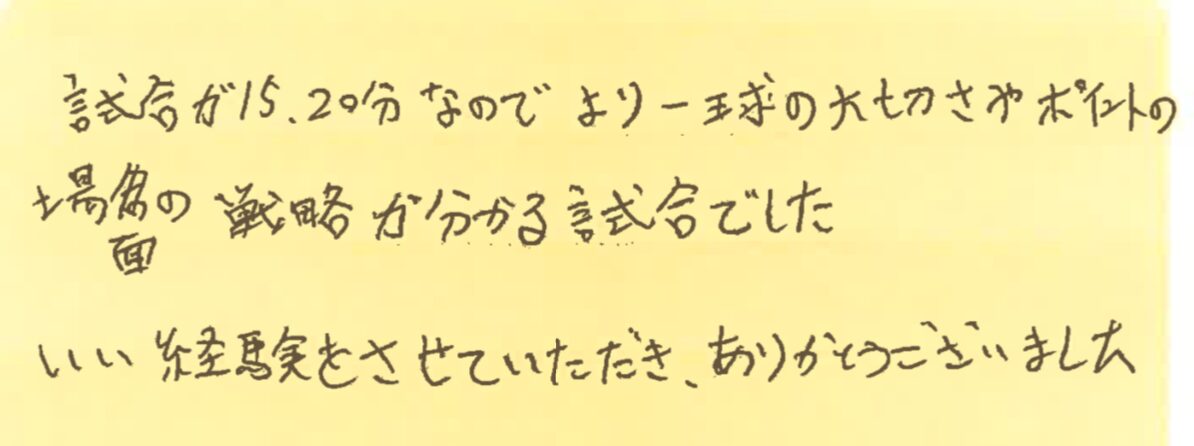 試合が15、20分なので より一球の大切さやポイントの
場面の 戦略が分かる試合でした
いい経験をさせていただき、ありがとうございました